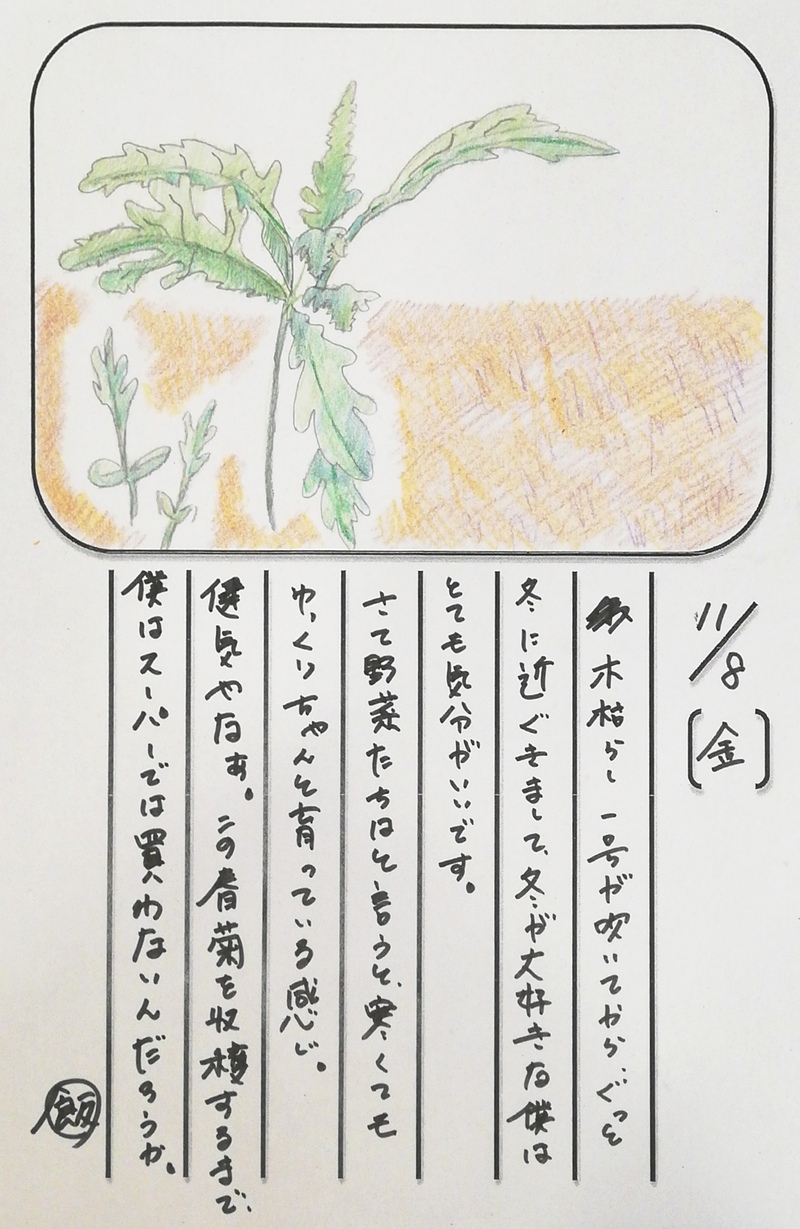 11/8
[金]
木枯らし一号が吹いてから、ぐっと
冬に近づきまして、冬が大好きな僕は
とても気分がいいです。
さて野菜たちはと言うと、寒くても
ゆっくりちゃんと育っている感じ。
健気やなぁ。この春菊を収穫するまで、
僕はスーパーでは買わないんだろうか。
飯